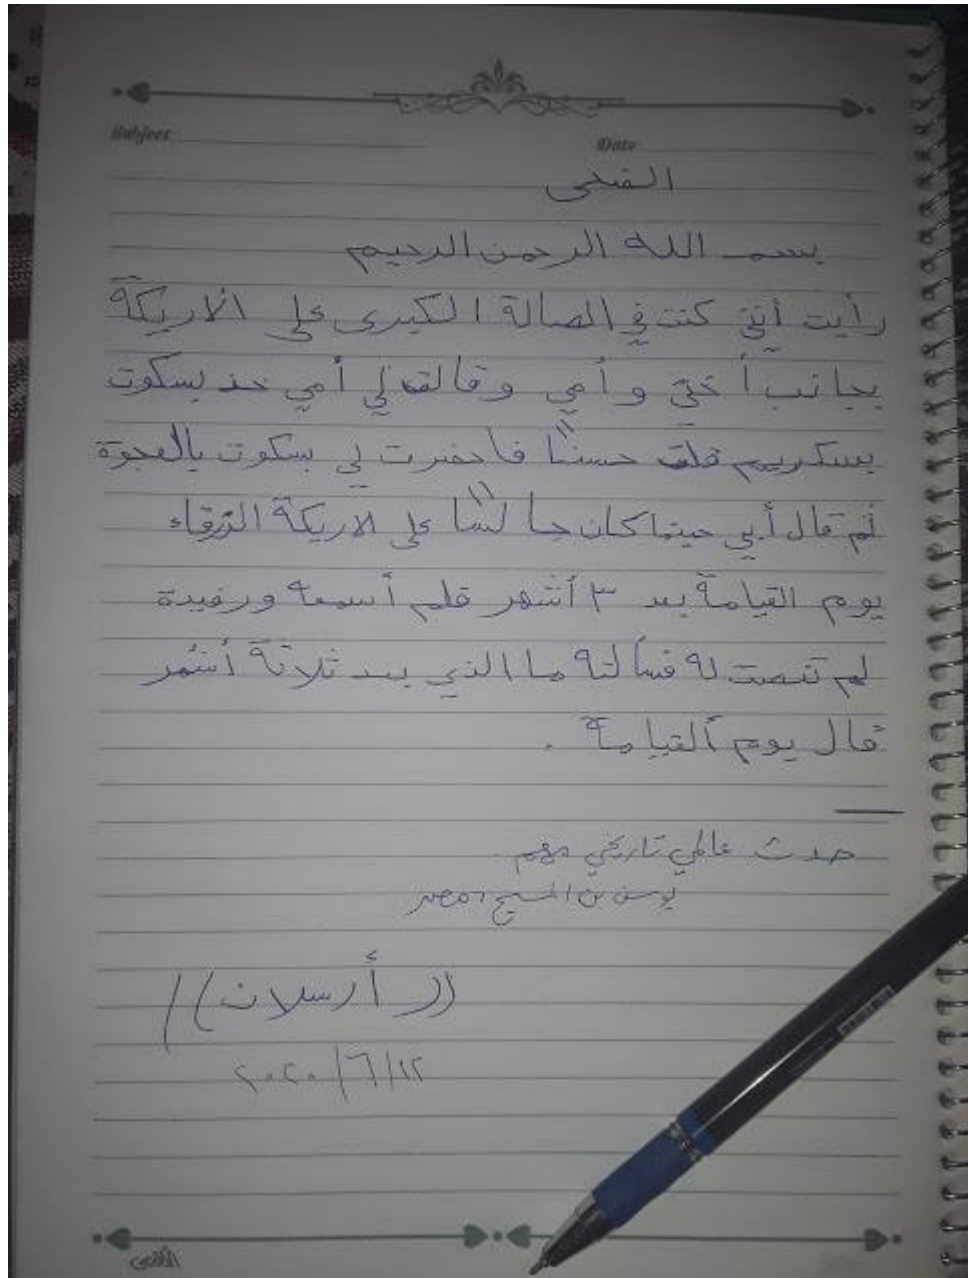 Subject:
Date
الضحى
بسم الله الرحمن الرحيم
رأيت أنني كنت في الصالة الكبرى على الاريكة
بجانب أختي وأمي وقالت لي أمي خذ بسكوت
بسكريم قلت حسنًا فاحضرت لي بسكوت بالعجوة
ثم قال أبي حينما كان جالسًا على الاريكة الزرقاء
يوم القيامة بعد ٣ أشهر فلم أسمعه ورفيدة
لم تنصت له فسألته ما الذي بعد ثلاثة أشهر
قال يوم القيامة .
حدث عالمي تاريخي مهم
يوسف بن المسيح، مصر
((أرسلان))
٢٠٢٠/٦/١٢